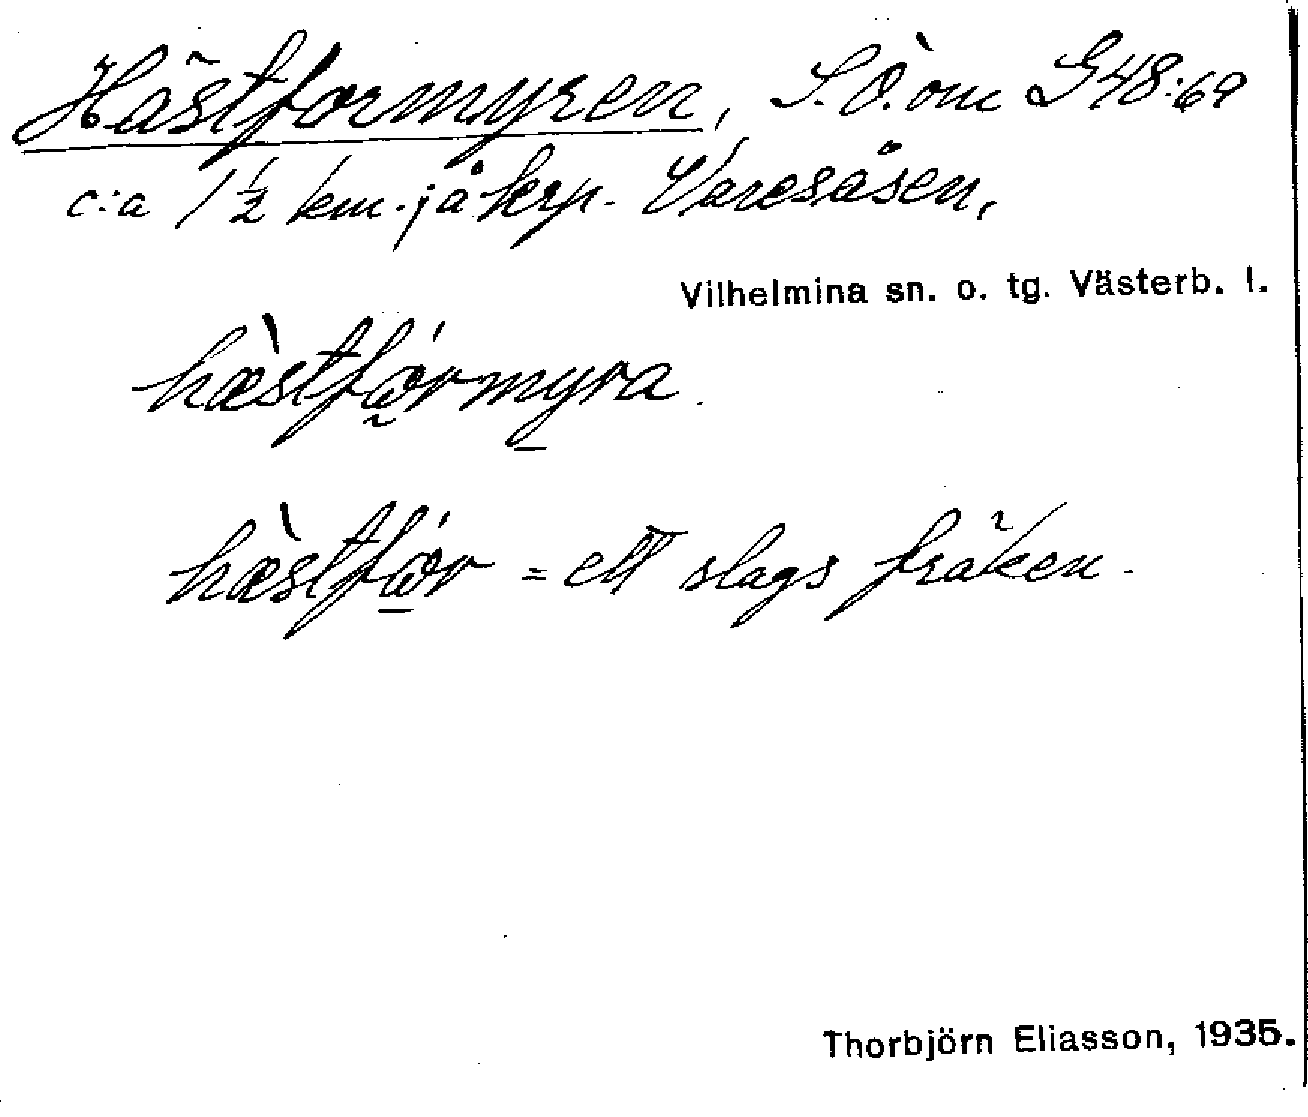 Hästformyren, S.O. om G48:69
c:a 1½ km. på krp. Varesåsen,
Vilhelmina sn. o. tg. Västerb. l.
hæ̀stfǿrmyra.
hæ̀stfǿr = ett slags fräken.
Thorbjörn Eliasson, 1935.